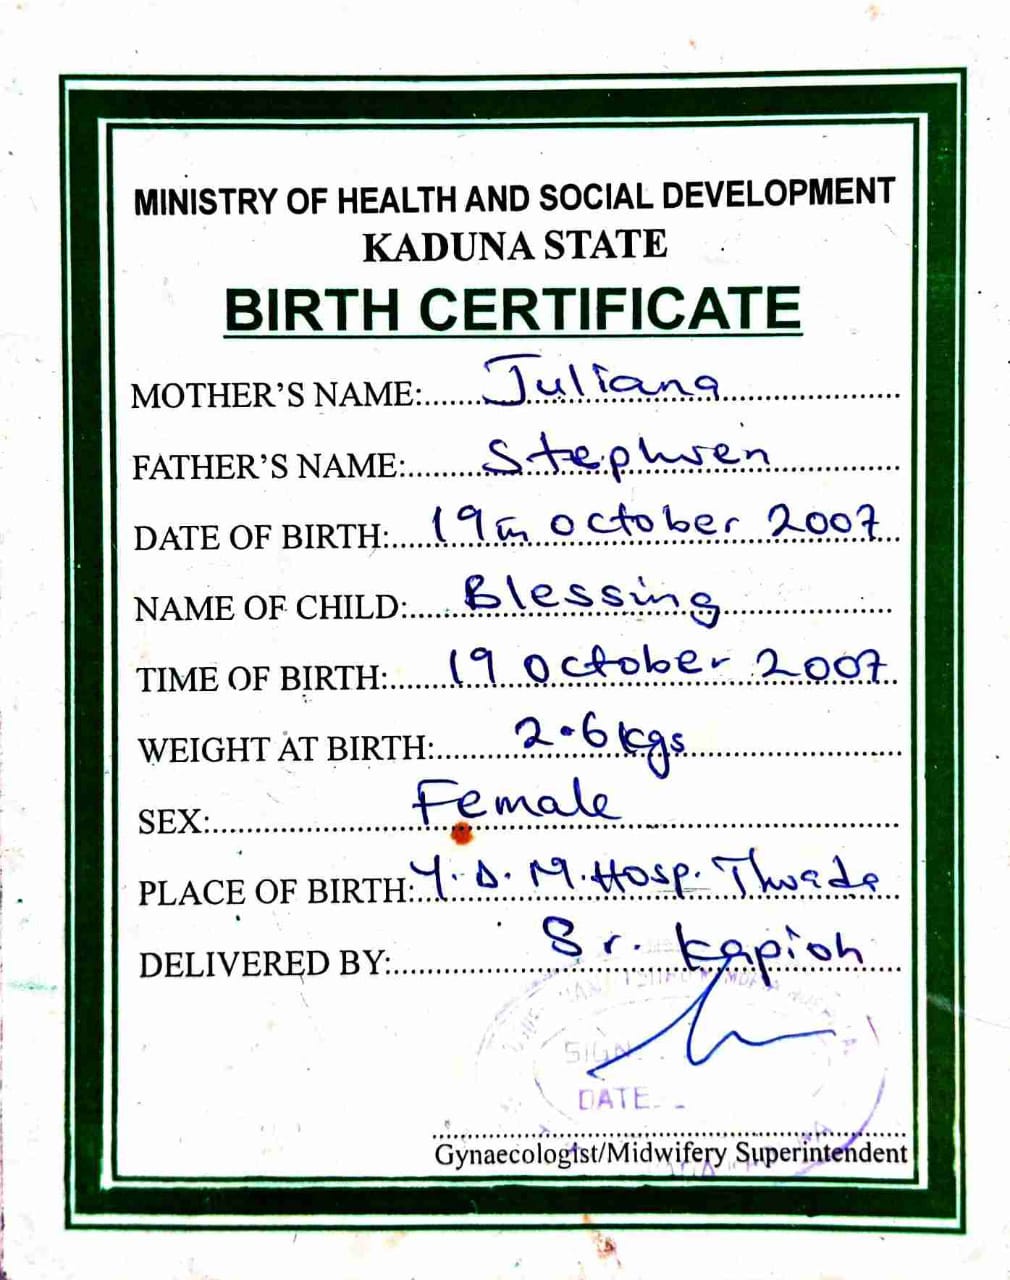 MINISTRY OF HEALTH AND SOCIAL DEVELOPMENT
KADUNA STATE
BIRTH CERTIFICATE
MOTHER'S NAME: Juliana
FATHER'S NAME: Stephen
DATE OF BIRTH: 19th October 2007
NAME OF CHILD: Blessing
TIME OF BIRTH: 19 October 2007
WEIGHT AT BIRTH: 2.6kgs
SEX: Female
PLACE OF BIRTH: Y.D.M. Hosp. T/Wada
DELIVERED BY: Sr.
SIGN
DATE
Gynaecologist/Midwifery Superintendent